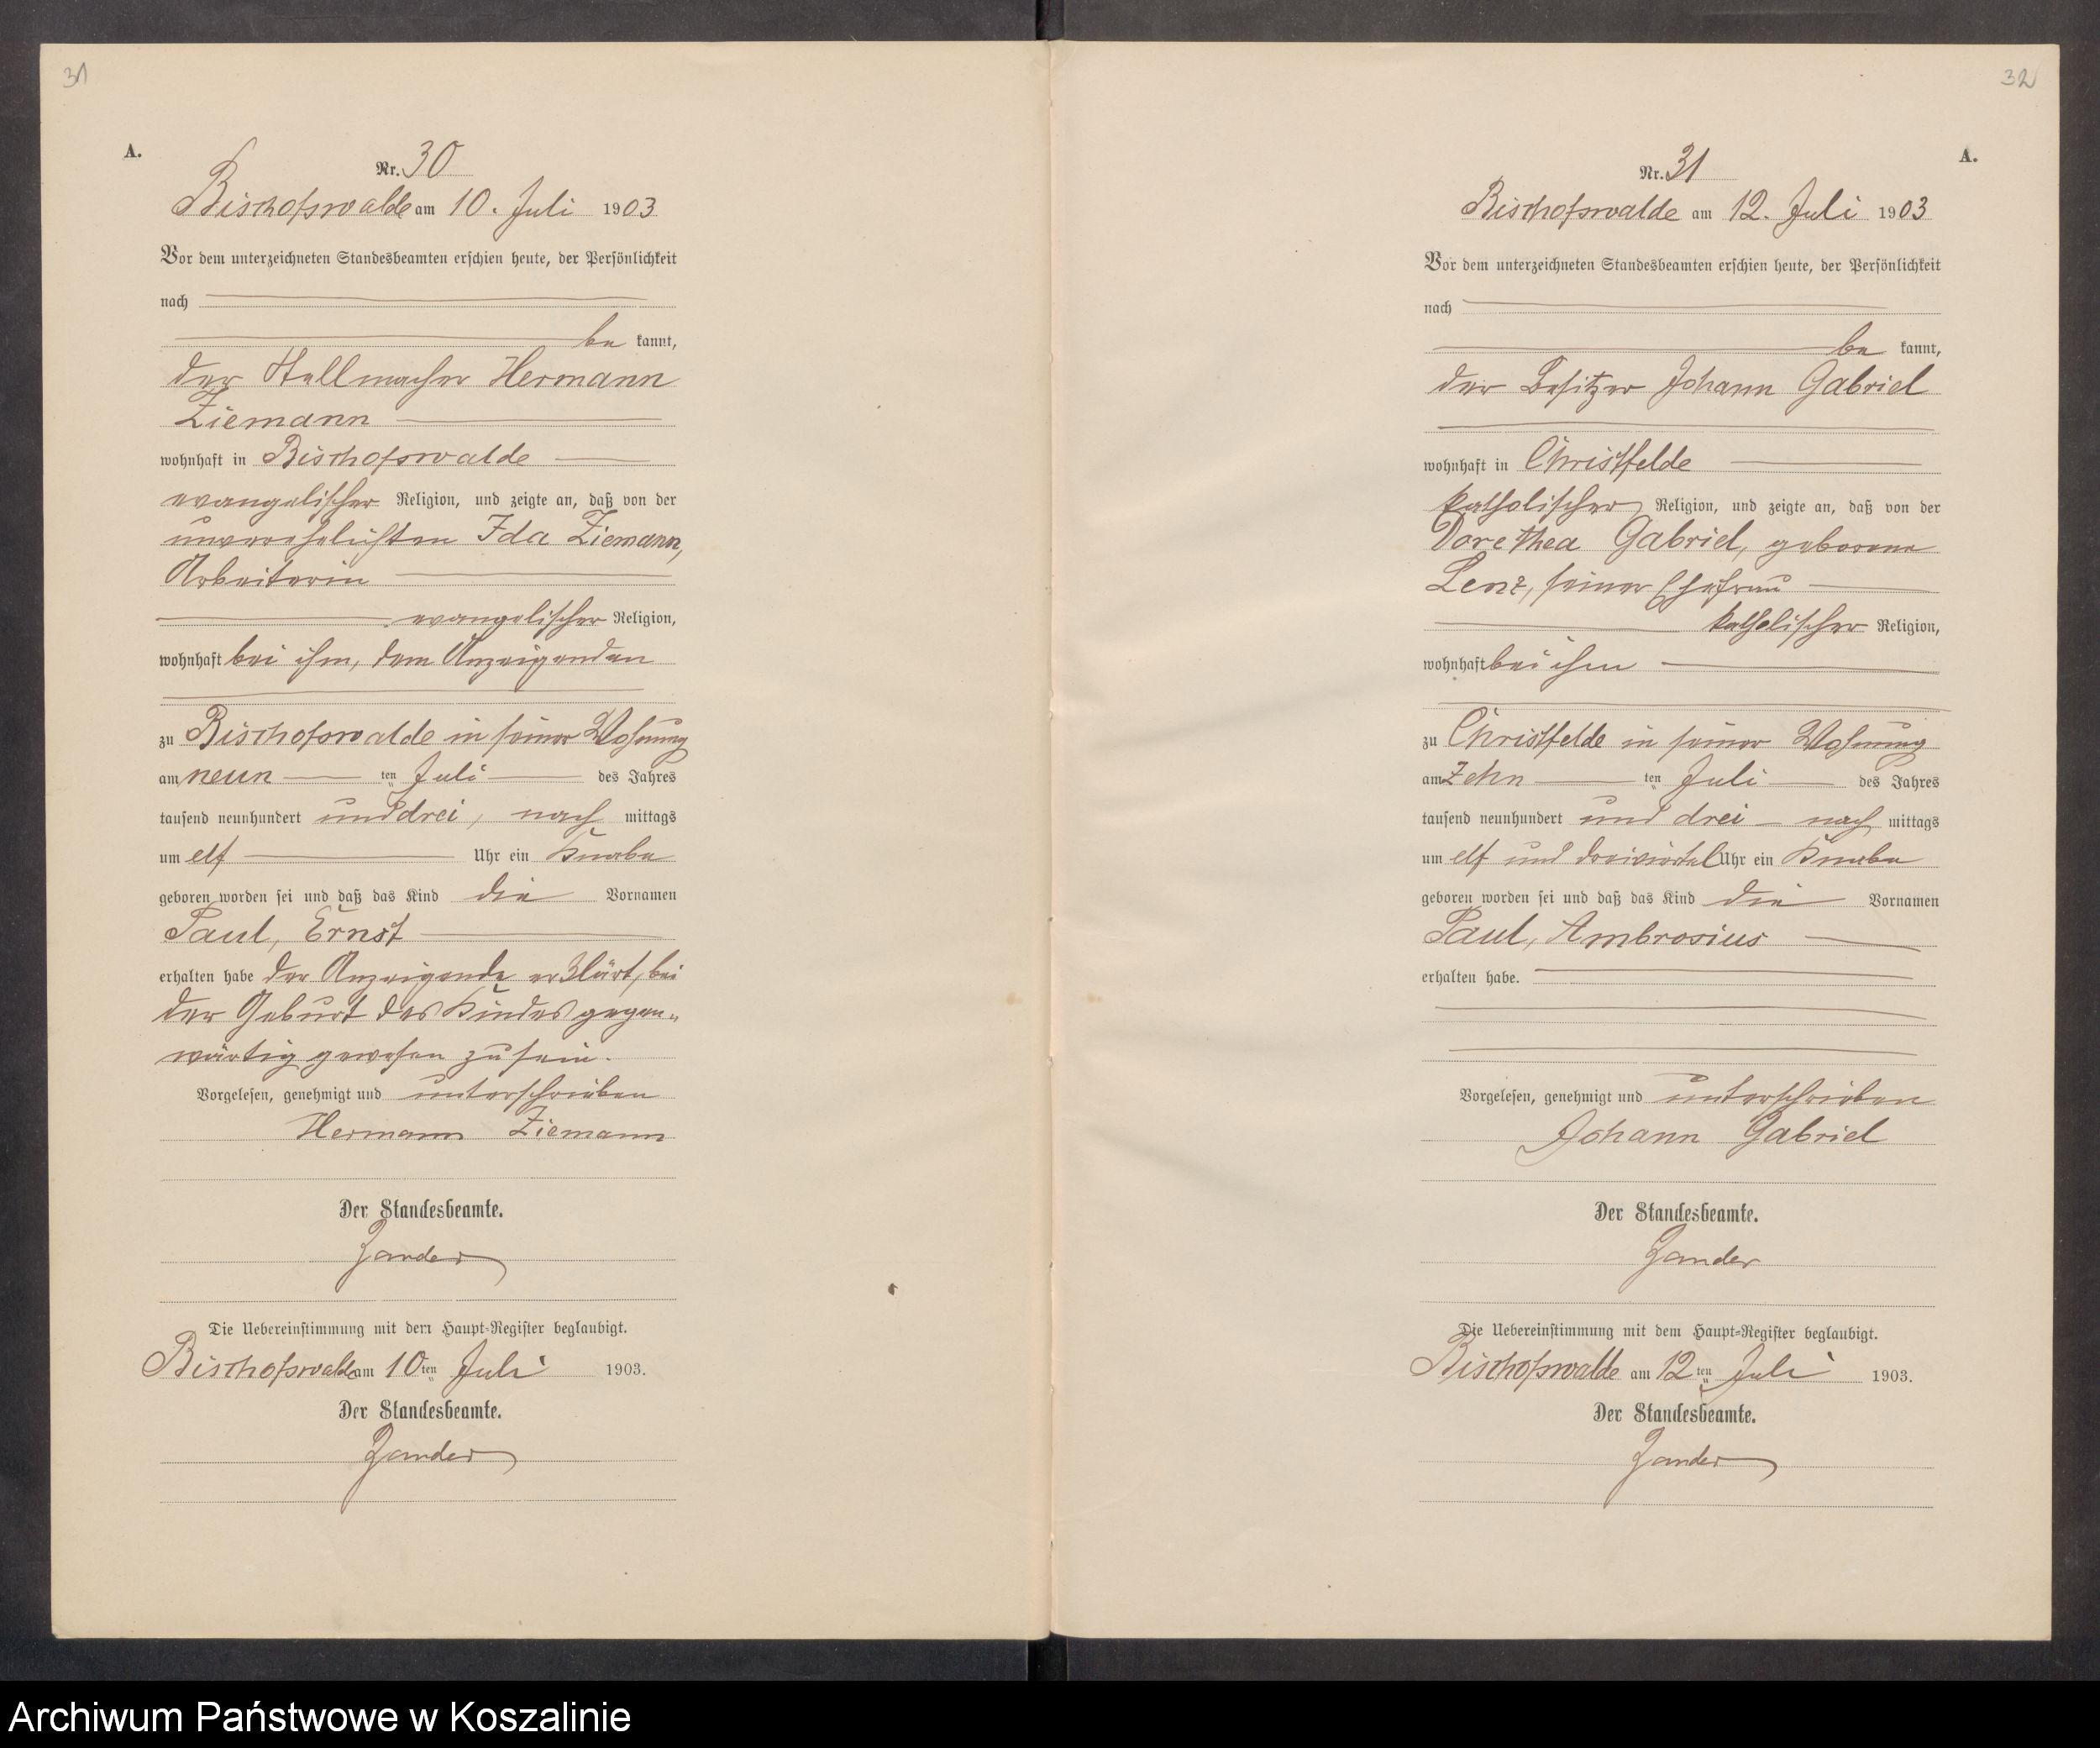 31
A.
Nr. 30
Bischofswalde am 10. Juli 1903
Vor dem unterzeichneten Standesbeamten erschien heute, der Persönlichkeit
nach
be kannt,
der Stellmacher Hermann
Ziemann
wohnhaft in Bischofswalde
evangelischer Religion, und zeigte an, daß von der
unverehelichten Ida Ziemann,
Arbeiterin
evangelischer Religion,
wohnhaft bei ihm, dem Anzeigenden
zu Bischofswalde in seiner Wohnung
am neun ten Juli des Jahres
tausend neunhundert und drei, nach mittags
um elf Uhr ein Knabe
geboren worden sei und daß das Kind die Vornamen
Paul, Ernst
erhalten habe der Anzeigende erklärt, bei
der Geburt des Kindes gegen-
wärtig gewesen zu sein.
Vorgelesen, genehmigt und unterschrieben
Hermann Ziemann
Der Standesbeamte.
Zander
Die Uebereinstimmung mit dem Haupt-Register beglaubigt.
Bischofswalde am 10ten Juli 1903.
Der Standesbeamte.
Zander
32
A.
Nr. 31
Bischofswalde am 12. Juli 1903
Vor dem unterzeichneten Standesbeamten erschien heute, der Persönlichkeit
nach
be kannt,
der Besitzer Johann Gabriel
wohnhaft in Christfelde
katholischer Religion, und zeigte an, daß von der
Dorethea Gabriel, geborene
Lenz, seiner Ehefrau
katholischer Religion,
wohnhaft bei ihm
zu Christfelde in seiner Wohnung
am Zehn ten Juli des Jahres
tausend neunhundert und drei nach mittags
um elf und dreiviertel Uhr ein Knabe
geboren worden sei und daß das Kind die Vornamen
Paul, Ambrosius
erhalten habe.
Vorgelesen, genehmigt und unterschrieben
Johann Gabriel
Der Standesbeamte.
Zander
Die Uebereinstimmung mit dem Haupt-Register beglaubigt.
Bischofswalde am 12ten Juli 1903.
Der Standesbeamte.
Zander
Archiwum Państwowe w Koszalinie